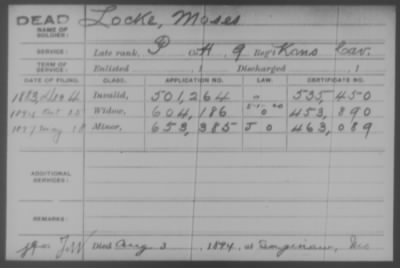 DEAD Locke, Moses
NAME OF SOLDIER:
SERVICE: Late rank, P Co. H, 9 Reg't Kans Cav.
TERM OF SERVICE: Enlisted , 1 Discharged , 1
DATE OF FILING. CLASS. APPLICATION NO. LAW. CERTIFICATE NO.
Invalid, 501,264 535,450
Oct 25 Widow, 604,186 453,890
May 18 Minor, 653,385 463,089
ADDITIONAL SERVICES:
REMARKS:
Died Aug 3, 1894, at